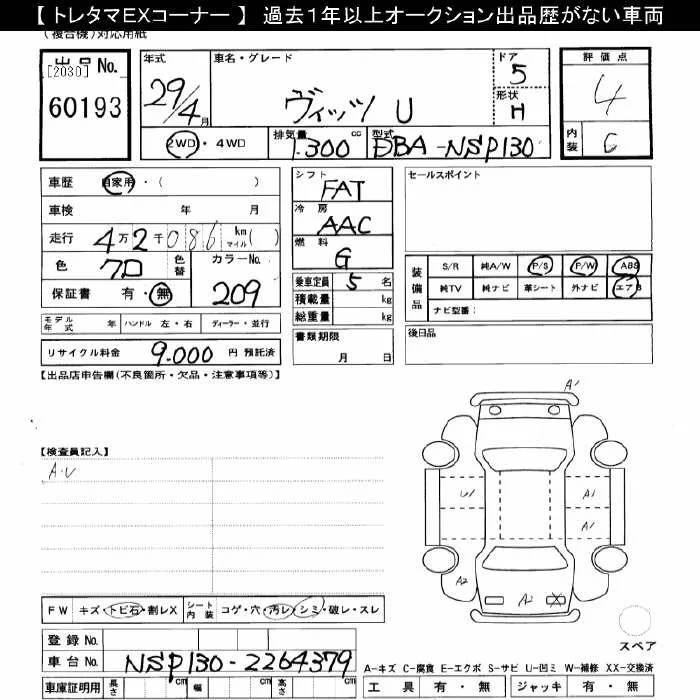 【 トレタマEXコーナー 】 過去1年以上オークション出品歴がない車両
(複合機)対応用紙
出品 No.
[2030]
60193
年式
29/4月
車名・グレード
ヴィッツ U
ドア
5
形状
H
評価点
4
内装
C
2WD・4WD
排気量
1.300 cc
型式
DBA-NSP130
車歴 自家用・( )
車検 年 月
走行 4万2千086 km マイル( )
色 クロ
色替
カラーNo.
209
保証書 有・無
シフト
FAT
冷房
AAC
燃料
G
乗車定員 5 名
積載量 kg
総重量 kg
書類期限
月 日
セールスポイント
装備品
S/R 純A/W P/S P/W ABS
純TV 純ナビ 革シート 外ナビ エアB
ナビ型番:
後日品
モデル年式 年 ハンドル 左・右 ディーラー・並行
リサイクル料金 9.000 円 預託済
【出品店申告欄(不良箇所・欠品・注意事項等)】
【検査員記入】
A.U
A1
U1
A1
A1
A2
A2
X
スペア
FW キズ・トビ石・割レX
シート内装 コゲ・穴・汚レ・シミ・破レ・スレ
登録 No.
車台 No. NSP130-2264379
車庫証明用 長さ cm 幅 cm 高さ cm
A-キズ C-腐食 E-エクボ S-サビ U-凹ミ W-補修 XX-交換済
工具 有・無 ジャッキ 有・無